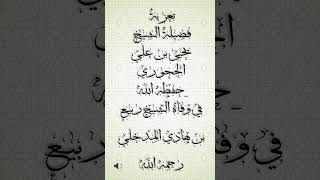 تعزية
فضيلة الشيخ
يحيى بن علي
الحجوري
حفظه الله
في وفاة الشيخ ربيع
بن هادي المدخلي
رحمه الله